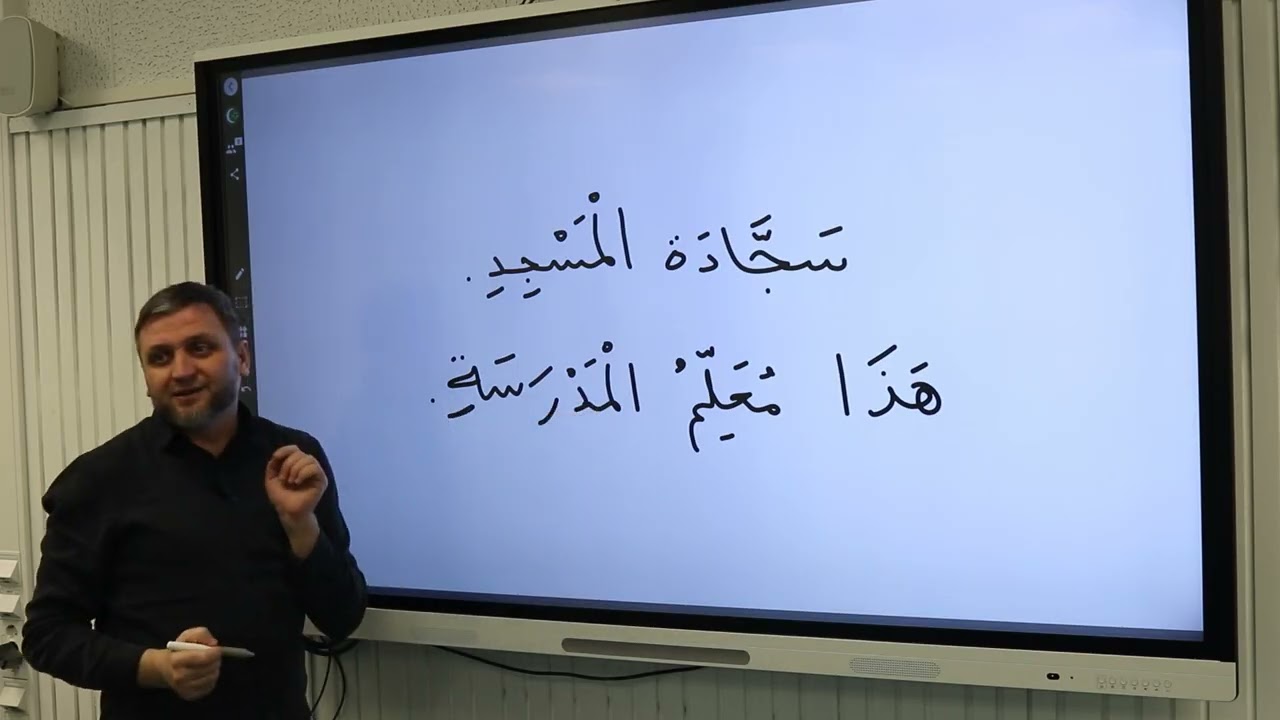 سَجَّادَة الْمَسْجِدِ.
هَذَا مُعَلِّمُ الْمَدْرَسَةِ.